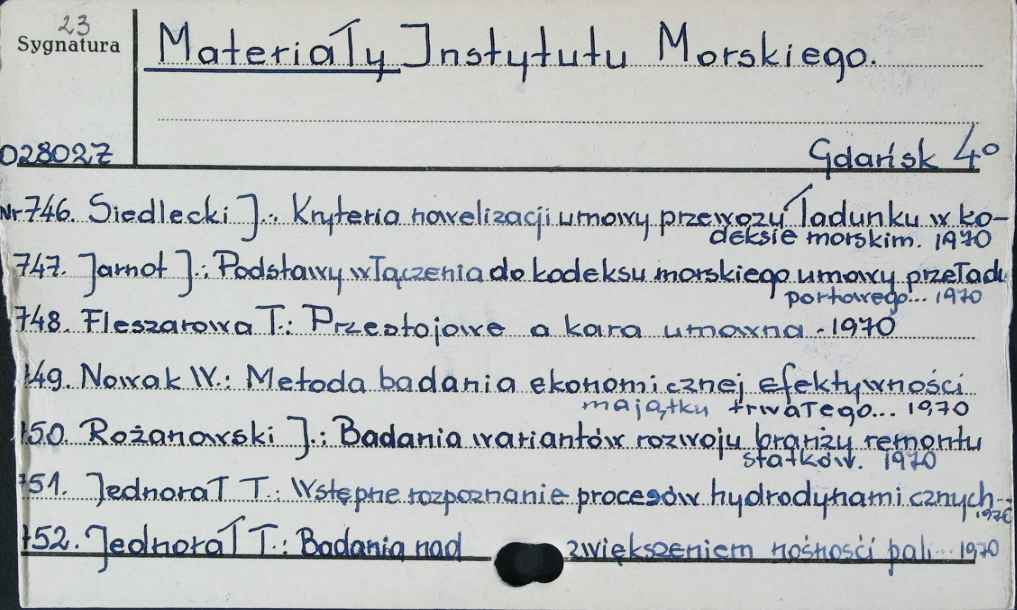 23
Sygnatura
Materiały Instytutu Morskiego.
028027
Gdańsk 4°
Nr 746. Siedlecki J.: Kryteria nowelizacji umowy przewozu ładunku w ko-
deksie morskim. 1970
747. Jarnot J.: Podstawy włączenia do kodeksu morskiego umowy przeład
portowego... 1970
748. Fleszarowa T.: Przestojowe a kara umowna. 1970
749. Nowak W.: Metoda badania ekonomicznej efektywności
majątku trwałego... 1970
750. Rożanowski J.: Badania wariantów rozwoju branży remontu
statków. 1970
751. Jednorał T.: Wstępne rozpoznanie procesów hydrodynamicznych...
1970
752. Jednorał T.: Badania nad zwiększeniem nośności pali... 1970